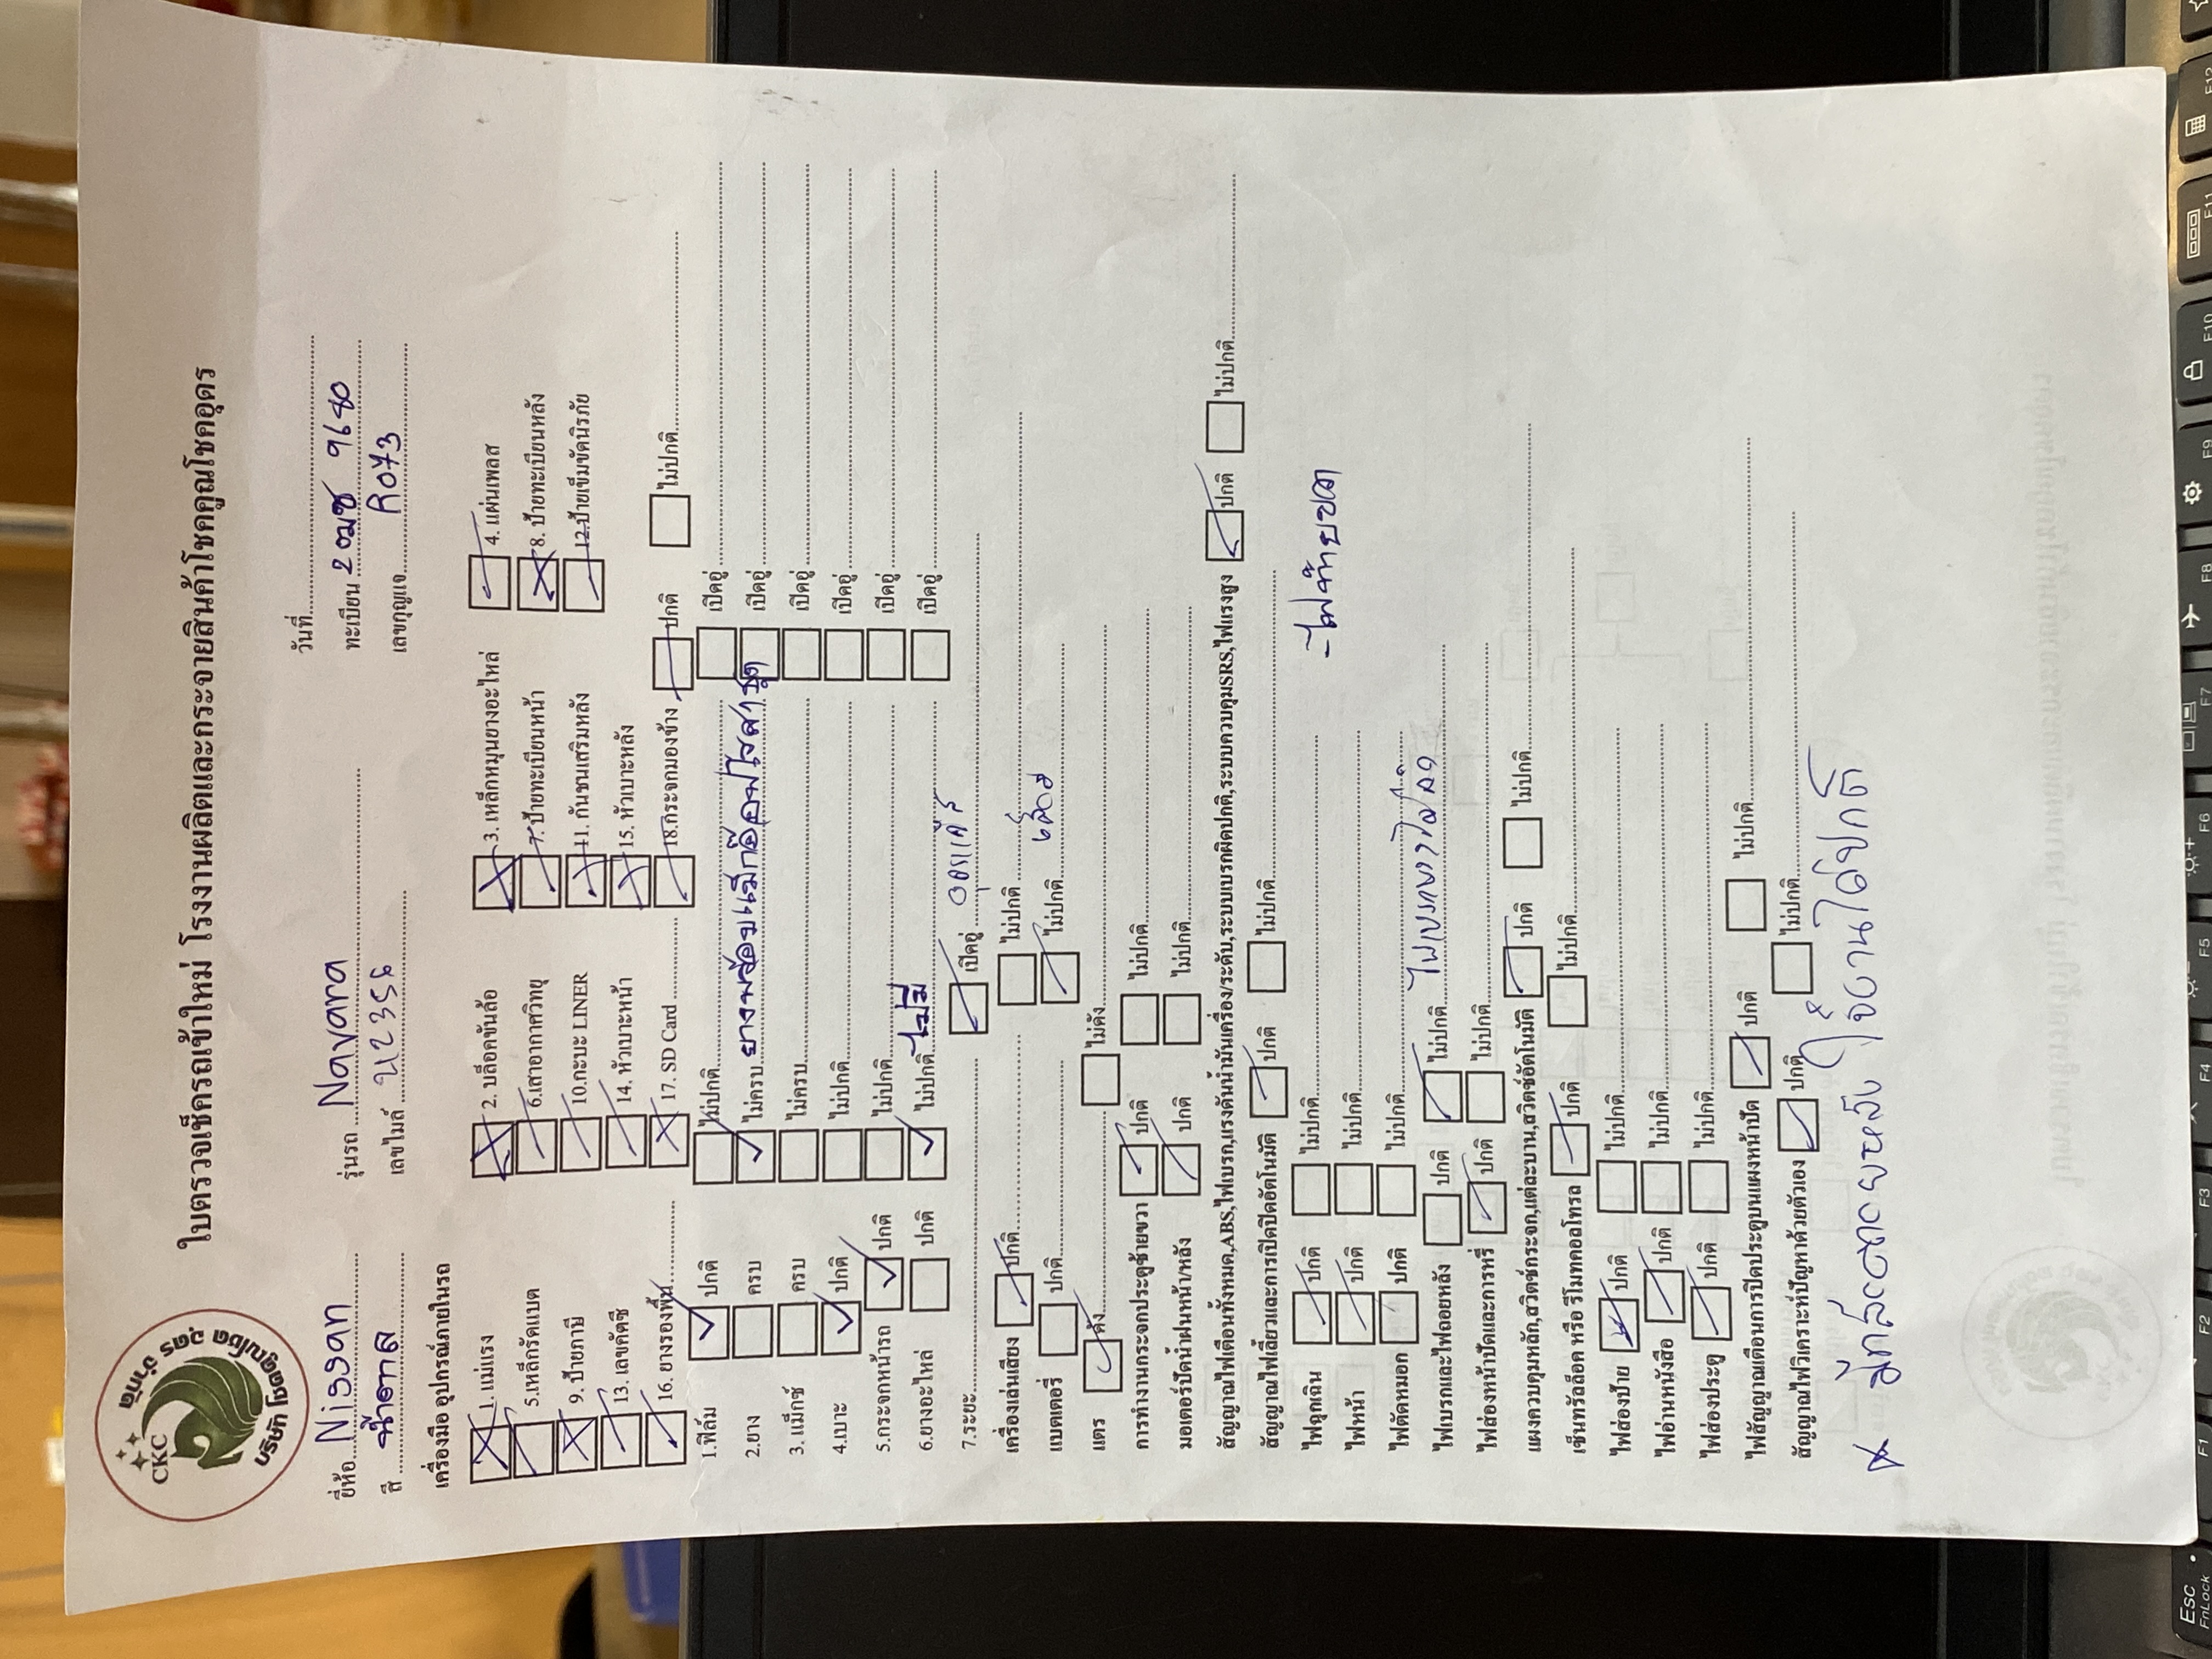 CKC
บริษัท โชคคูณโชค อุดร จำกัด
ใบตรวจเช็ครถเข้าใหม่ โรงงานผลิตและกระจายสินค้าโชคคูณโชคอุดร
วันที่
ยี่ห้อ Nissan รุ่นรถ Navara ทะเบียน 2ฒฆ 9680
สี น้ำตาล เลขไมล์ เลขกุญแจ R073
เครื่องมือ อุปกรณ์ภายในรถ
1. แม่แรง 2. บล็อคขันล้อ 3. เหล็กหมุนยางอะไหล่ 4. แผ่นเพลส
5.เหล็กรัดแบต 6.เสาอากาศวิทยุ 7. ป้ายทะเบียนหน้า 8. ป้ายทะเบียนหลัง
9. ป้ายภาษี 10.กะบะ LINER 11. กันชนเสริมหลัง 12.ป้ายเข็มขัดนิรภัย
13. เลขคัตซี 14. หัวเบาะหน้า 15. หัวเบาะหลัง
16. ยางรองพื้น 17. SD Card 18.กระจกมองข้าง ปกติ ไม่ปกติ
1.ฟิล์ม ปกติ ไม่ปกติ เบิคอู่
2.ยาง ครบ ไม่ครบ ยางพร้อมแม็กล้อม เบิคอู่
3. แม็กซ์ ครบ ไม่ครบ เบิคอู่
4.เบาะ ปกติ ไม่ปกติ เบิคอู่
5.กระจกหน้ารถ ปกติ ไม่ปกติ เบิคอู่
6.ยางอะไหล่ ปกติ ไม่ปกติ ไม่มี เบิคอู่
7.ระยะ เบิคอู่
เครื่องเล่นเสียง ปกติ ไม่ปกติ
แบตเตอรี่ ปกติ ไม่ปกติ เสื่อม
แตร ดัง ไม่ดัง
การทำงานกระจกประตูซ้ายขวา ปกติ ไม่ปกติ
มอเตอร์ปัดน้ำฝนหน้า/หลัง ปกติ ไม่ปกติ
สัญญาณไฟเตือนทั้งหมด,ABS,ไฟเบรก,แรงดันน้ำมันเครื่อง/ระดับ,ระบบเบรกผิดปกติ,ระบบควบคุมSRS,ไฟแรงสูง ปกติ ไม่ปกติ
สัญญาณไฟเลี้ยวและการเปิดปิดอัตโนมัติ ปกติ ไม่ปกติ
ไฟฉุกเฉิน ปกติ ไม่ปกติ -ไฟท้ายขวา
ไฟหน้า ปกติ ไม่ปกติ
ไฟตัดหมอก ปกติ ไม่ปกติ
ไฟเบรกและไฟถอยหลัง ปกติ ไม่ปกติ ไฟเบรกขวาไม่ติด
ไฟส่องหน้าปัดและการหรี่ ปกติ ไม่ปกติ
แผงควบคุมหลัก,สวิตช์กระจก,แต่ละบาน,สวิตช์อัตโนมัติ ปกติ ไม่ปกติ
เซ็นทรัลล็อค หรือ รีโมทคอลโทรล ปกติ ไม่ปกติ
ไฟส่องป้าย ปกติ ไม่ปกติ
ไฟอ่านหนังสือ ปกติ ไม่ปกติ
ไฟส่องประตู ปกติ ไม่ปกติ
ไฟสัญญาณเตือนการปิดประตูบนแผงหน้าปัด ปกติ ไม่ปกติ
สัญญาณไฟวิเคราะห์ปัญหาด้วยตัวเอง ปกติ ไม่ปกติ
ใช้งานได้ปกติ
Esc
FnLock
F1
F2
F3
F4
F5
F6
F7
F8
F9
F10
F11
F12